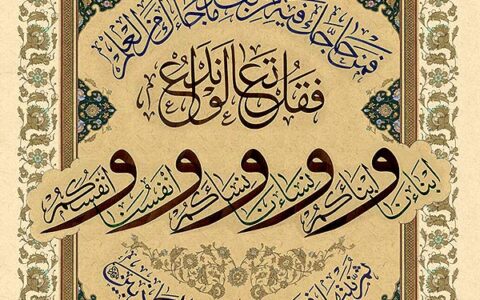 فمن حاجك فيه من بعد ما جاءك من العلم
فقل تعالوا ندع
ابناءنا و ابناءكم و نساءنا و نساءكم و انفسنا و انفسكم
ثم نبتهل